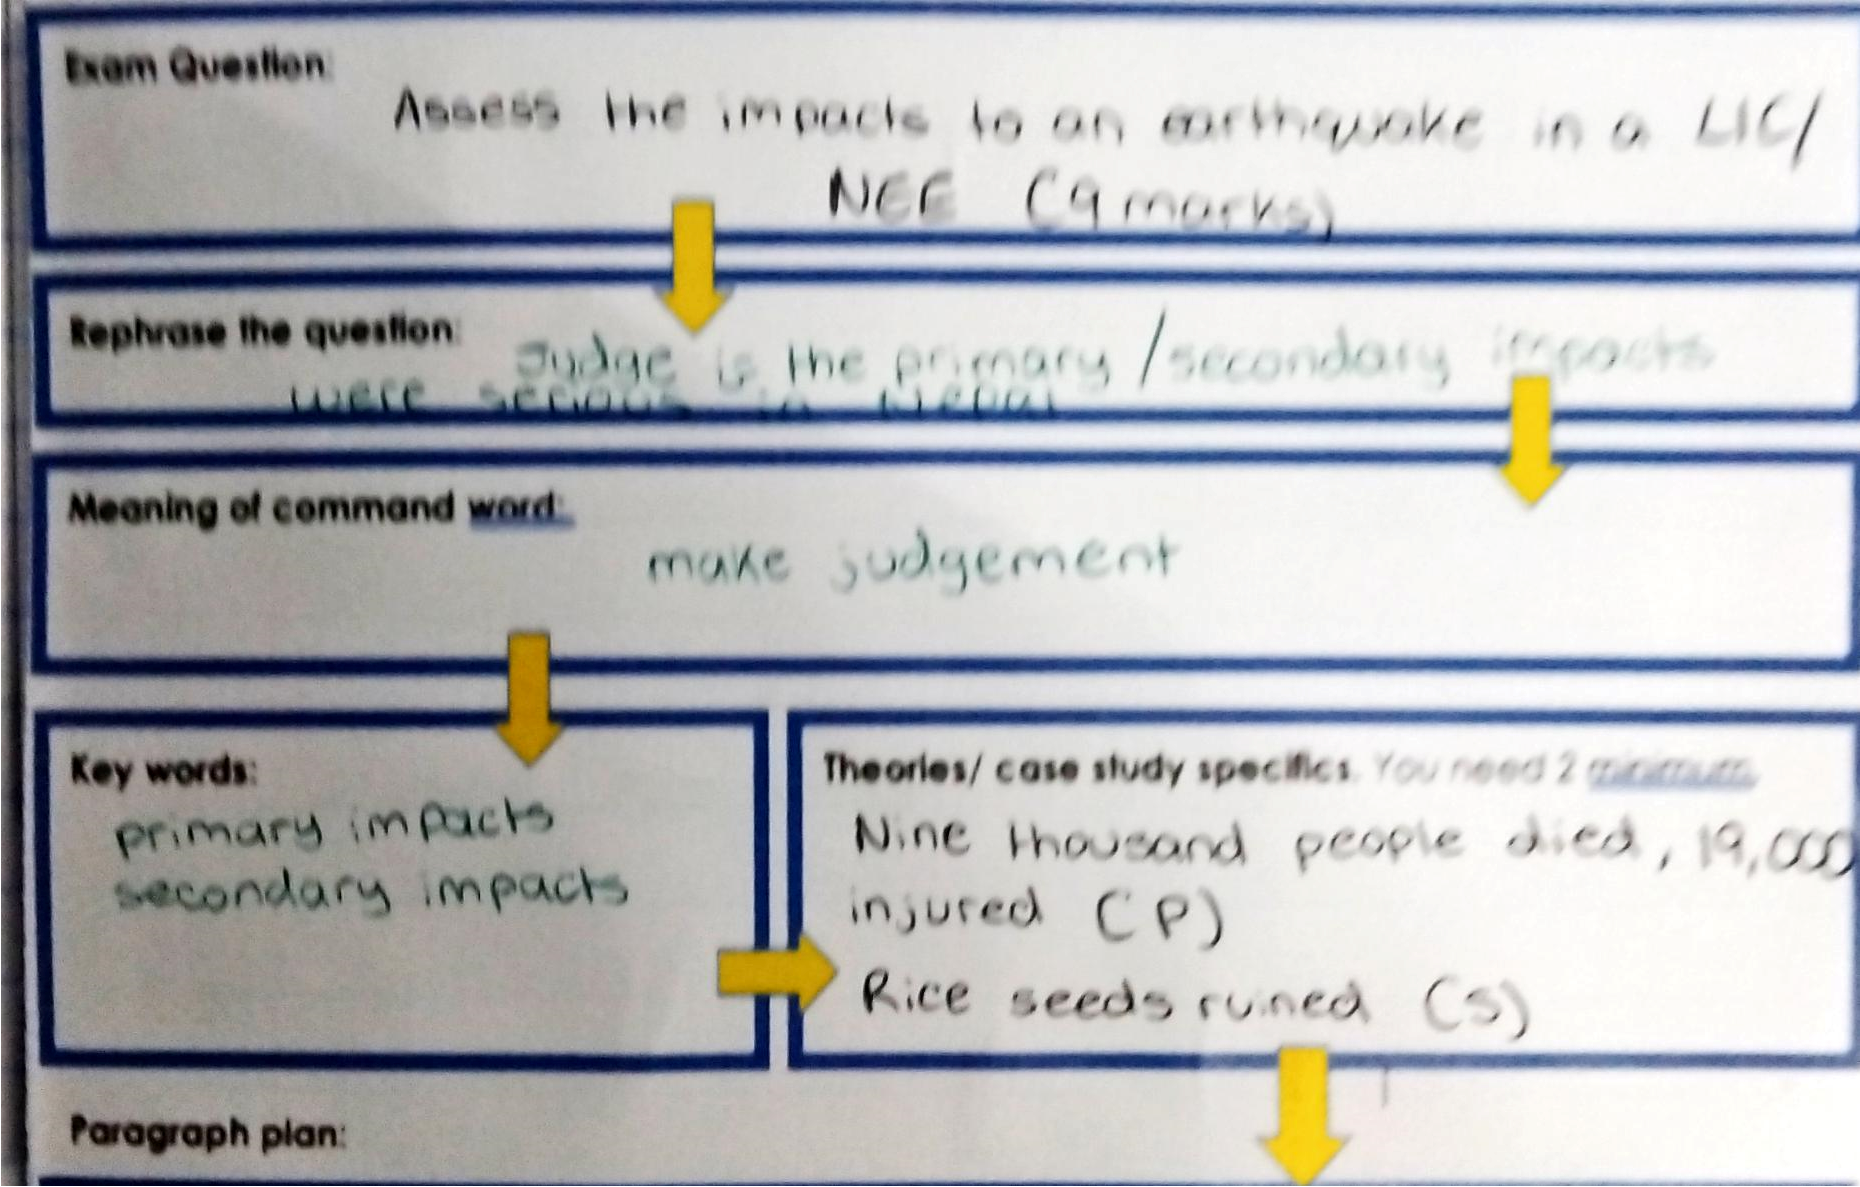 Exam Question:
Assess the impacts to an earthquake in a LIC/
NEE (9 marks)
Rephrase the question:
Judge is the primary / secondary impacts
were serious in Nepal
Meaning of command word:
make judgement
Key words:
primary impacts
secondary impacts
Theories/ case study specifics. You need 2 minimum.
Nine thousand people died, 19,000
injured (P)
Rice seeds ruined (S)
Paragraph plan: